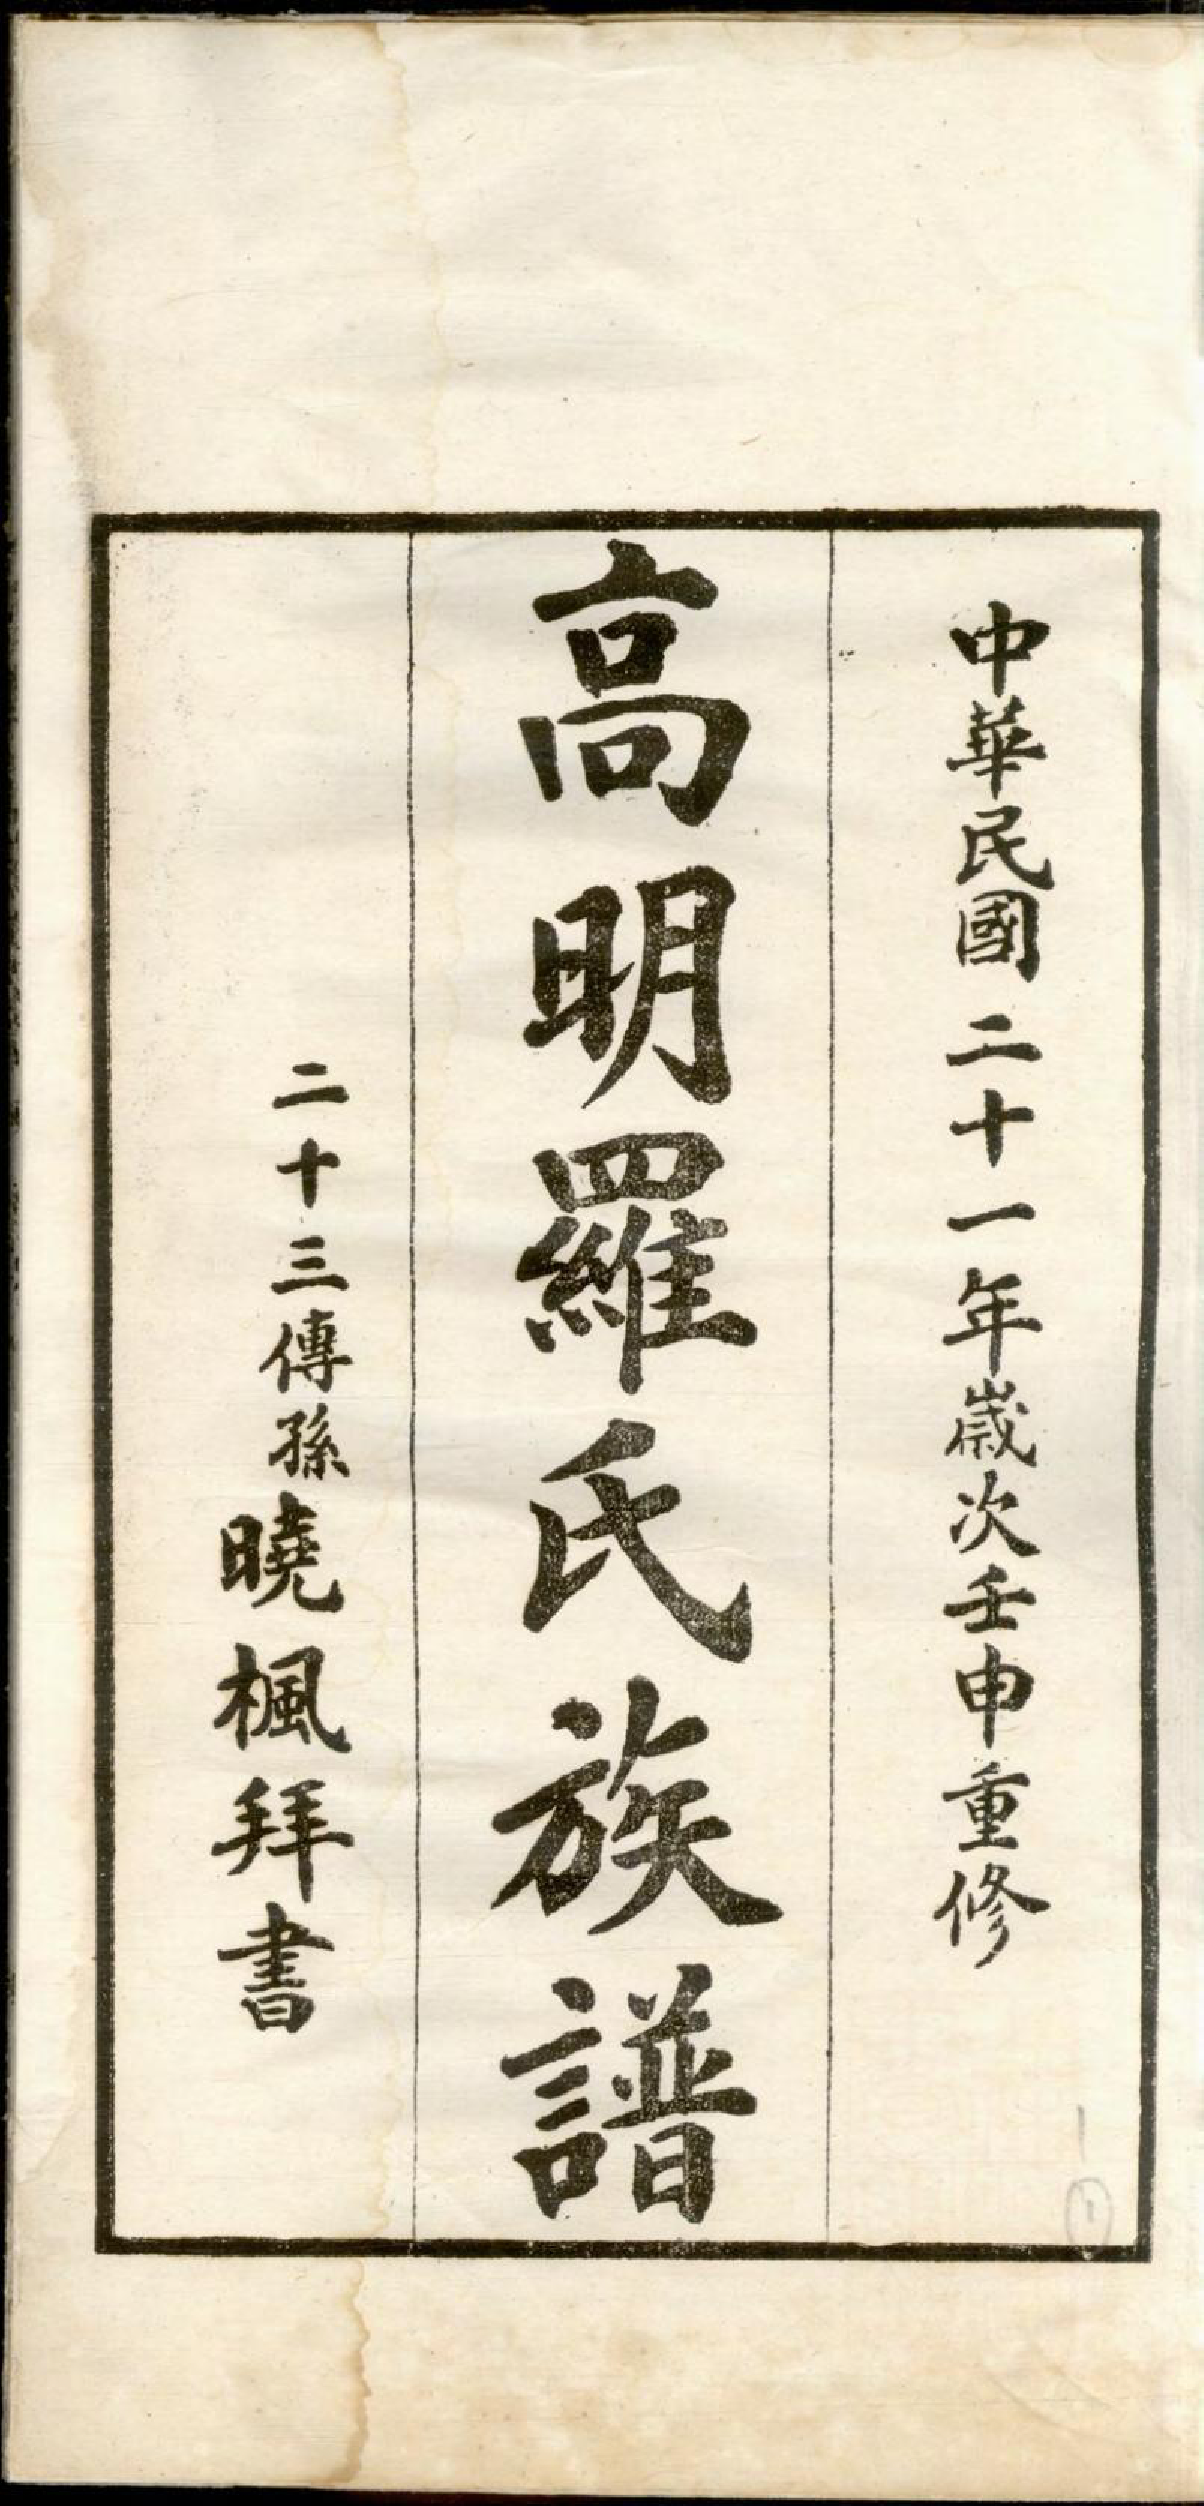 中華民國二十一年歲次壬申重修
高明羅氏族譜
二十三傳孫曉楓拜書